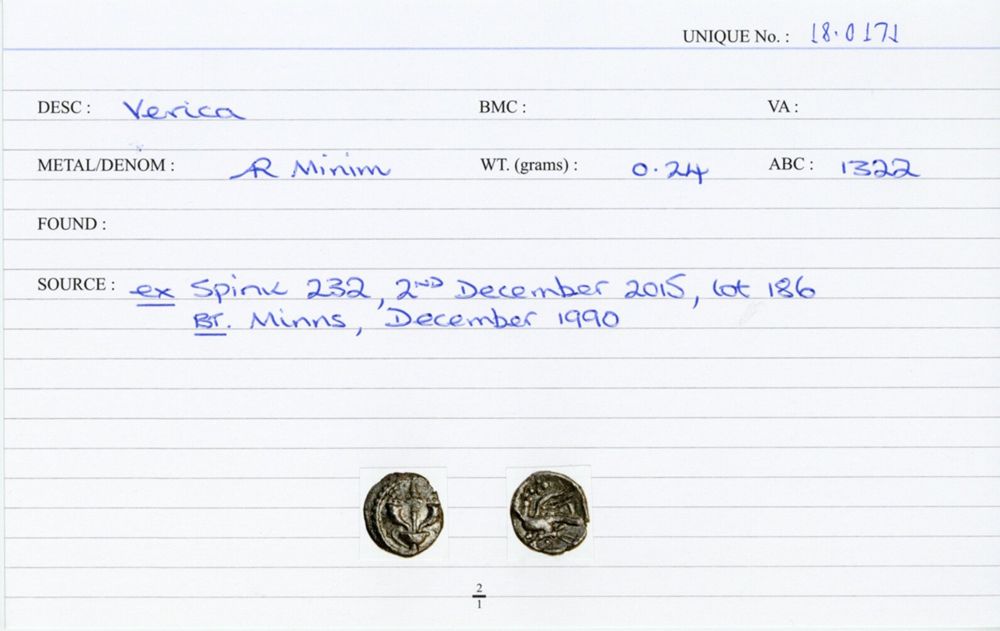 UNIQUE No. : 18.0171
DESC : Verica BMC : VA :
METAL/DENOM : AR Minim WT. (grams) : 0.24 ABC : 1322
FOUND :
SOURCE : ex Spink 232, 2ND December 2015, lot 186
BT. Minns, December 1990
2
1